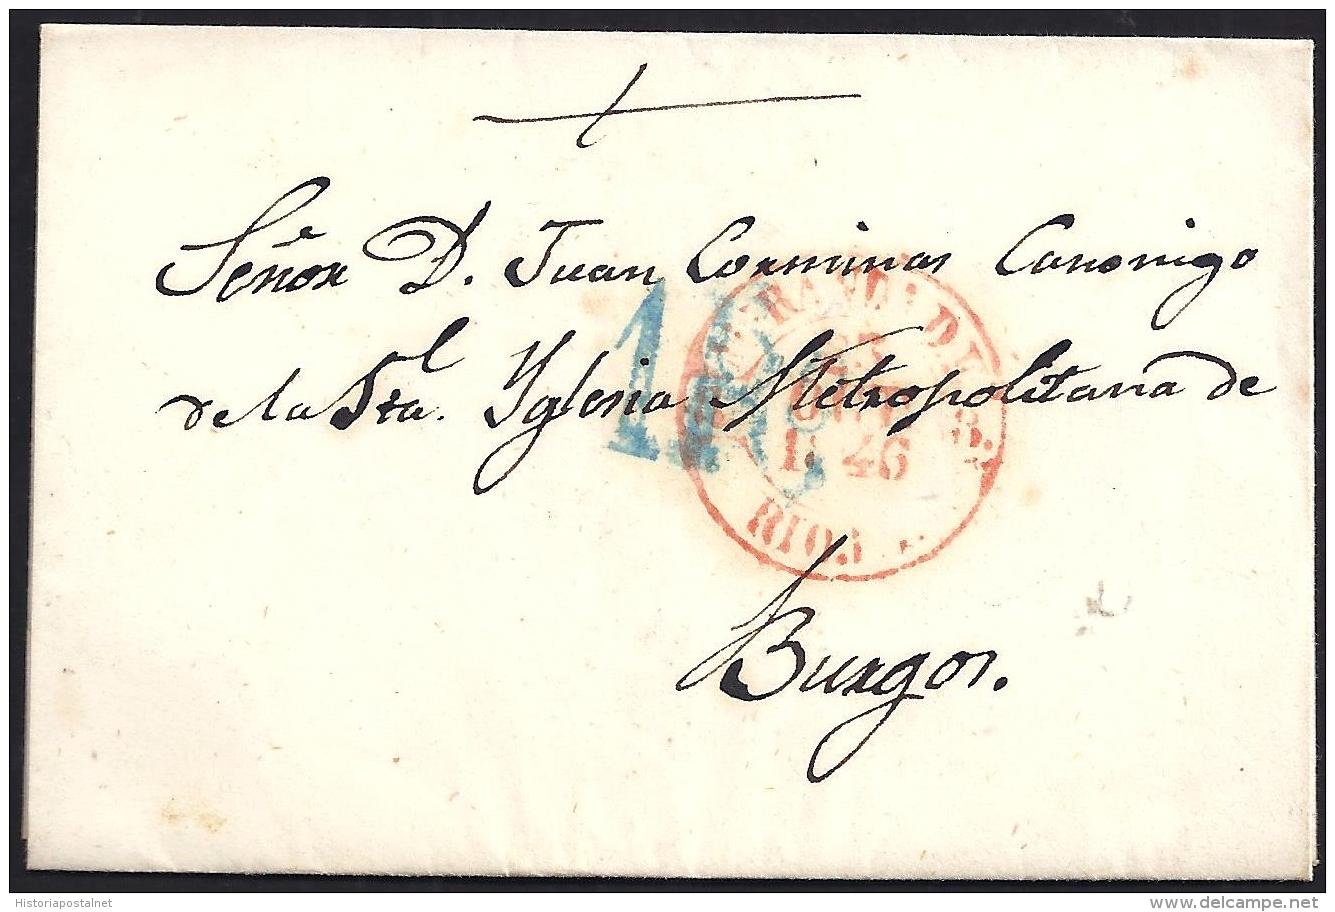 Señor D. Juan Corminas Canonigo
de la Sta. Yglesia Metropolitana de
Burgos.
1846
RIOJA
Historiapostalnet
www.delcampe.net